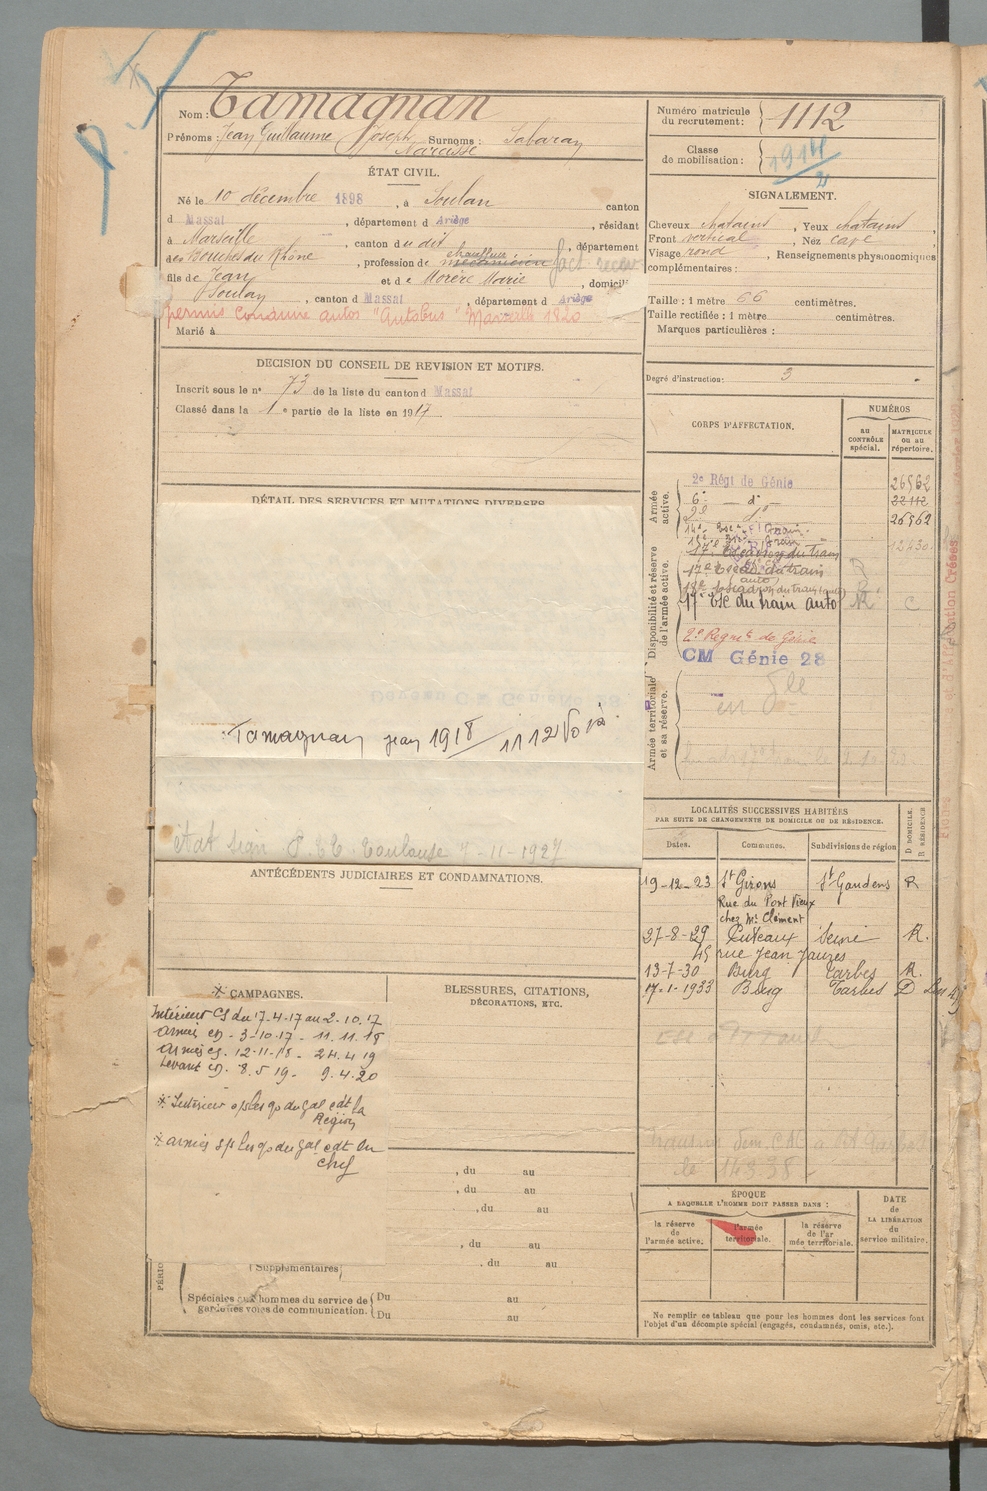 Nom : Tamagnan
Prénoms : Jean Guillaume Joseph Narcisse Surnoms : Sabaray
ÉTAT CIVIL.
Né le 10 décembre 1898, à Soulan canton
d Massat, département d Ariège, résidant
à Marseille, canton du dit, département
des Bouches du Rhône, profession de mécanicien chauffeur fact. recev
fils de Jean et de Morère Marie, domicil
Soulan, canton d Massat, département d Ariège
permis conduire autos "Autobus" Marseille 1820
Marié à
DECISION DU CONSEIL DE REVISION ET MOTIFS.
Inscrit sous le n° 73 de la liste du canton d Massat
Classé dans la 1e partie de la liste en 1917
DÉTAIL DES SERVICES ET MUTATIONS DIVERSES
Tamagnan jean 1918 1112
état sign P.TT. Toulouse 7-11-1927
ANTÉCÉDENTS JUDICIAIRES ET CONDAMNATIONS.
CAMPAGNES.
Intérieur CS du 17-4-17 au 2-10.17
Armée CD - 3-10-17 - 11.11.18
Armée CS. 12-11-18 - 24.4 19
Levant CD. 8.5 19 - 9.4.20
BLESSURES, CITATIONS,
DÉCORATIONS, ETC.
, du au
, du au
, du au
, du au
, du au
PÉRIO
Supplémentaires
Spéciales aux hommes du service de
garde des voies de communication.
Du au
Du au
Numéro matricule
du recrutement : 1112
Classe
de mobilisation : 1914
2
SIGNALEMENT.
Cheveux chatains, Yeux chatains,
Front vertical, Nez cave,
Visage rond, Renseignements physionomiques
complémentaires :
Taille : 1 mètre 66 centimètres.
Taille rectifiée : 1 mètre centimètres.
Marques particulières :
Degré d'instruction : 3
CORPS D'AFFECTATION.
NUMÉROS
au
CONTRÔLE
spécial.
MATRICULE
ou au
répertoire.
Armée
active.
2e Régt de Génie 26562
6e — do — 22112
2e do 26562
12430
Disponibilité et réserve
de l'armée active.
17e Escadron du train
17e Escad. du train R
18e Escadron du train (auto) R
17e Esc du train auto R C
2e Regnt de Génie
CM Génie 28
Armée territoriale
et sa réserve.
LOCALITÉS SUCCESSIVES HABITÉES
PAR SUITE DE CHANGEMENTS DE DOMICILE OU DE RÉSIDENCE.
Dates. Communes. Subdivisions de région D DOMICILE. R RÉSIDENCE
19-12-23 St Girons St Gaudens R
Rue du Pont Vieux
chez Mr Clément
27-8-29 Puteaux Seine R.
45 rue Jean Jaurès
13-7-30 Burg Tarbes R.
17-1-1933 Burg Tarbes D
ÉPOQUE
A LAQUELLE L'HOMME DOIT PASSER DANS :
la réserve
de
l'armée active.
l'armée
territoriale.
la réserve
de l'ar
mée territoriale.
DATE
de
LA LIBÉRATION
du
service militaire.
Ne remplir ce tableau que pour les hommes dont les services font
l'objet d'un décompte spécial (engagés, condamnés, omis, etc.).